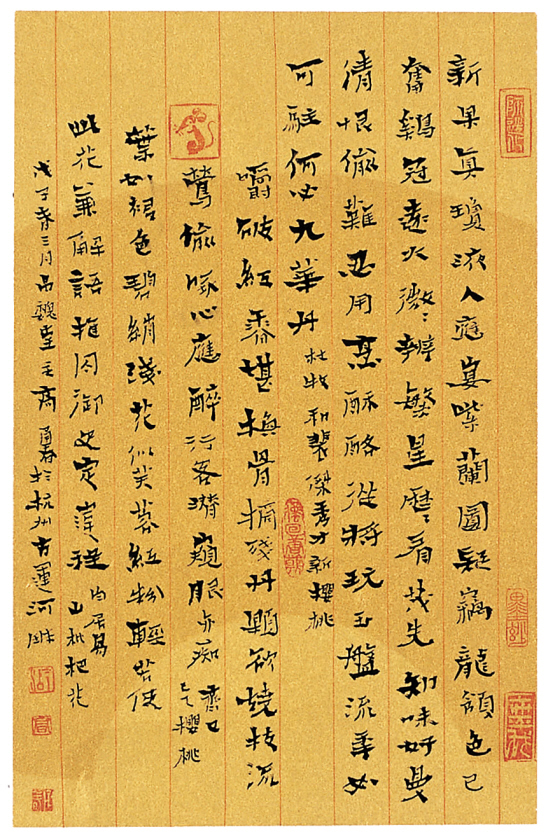 新果真瓊液人應宴紫蘭圓疑竊龍頷色已
奪鷄冠遠火微〻辨繁星歷〻看茂先知味好曼
倩恨偷難忍用烹酥酪從將玩玉盤流年如
可駐何必九華丹 杜牧和裴傑秀才新櫻桃
嚼破紅香堪換骨摘殘丹顆欲燒枝流
鶯偷啄心應醉行客潛窺眼亦痴 齊己乞櫻桃
葉如裙色碧綃淺花似芙蓉紅粉輕若使
此花兼解語推囚御史定違程 白居易山枇杷花
戊子春三月 魏堂主高勇於杭州古運河畔